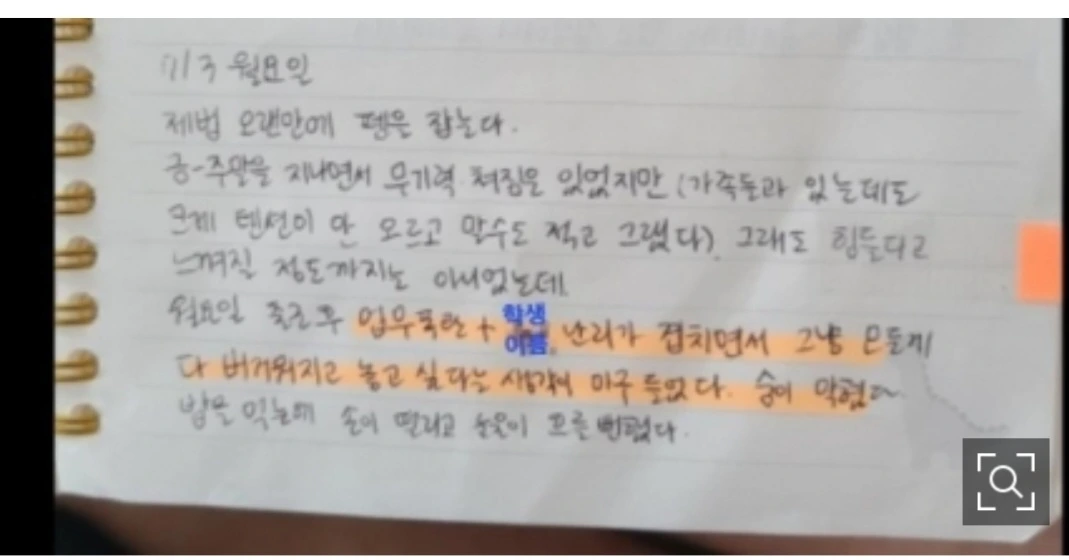 7/3 월요일
제법 오랜만에 펜을 잡는다.
금-주말을 지나면서 무기력 쳐짐은 있었지만 (가족들과 있는데도
크게 텐션이 안 오르고 말수도 적고 그랬다), 그래도 힘들다고
느껴질 정도까지는 아니었는데
월요일 출근 후 업무폭탄 + 학생이름 난리가 겹치면서 그냥 모든게
다 버거워지고 놓고 싶다는 생각이 마구 들었다. 숨이 막혔다
밥을 먹는데 손이 떨리고 눈물이 흐를뻔했다.